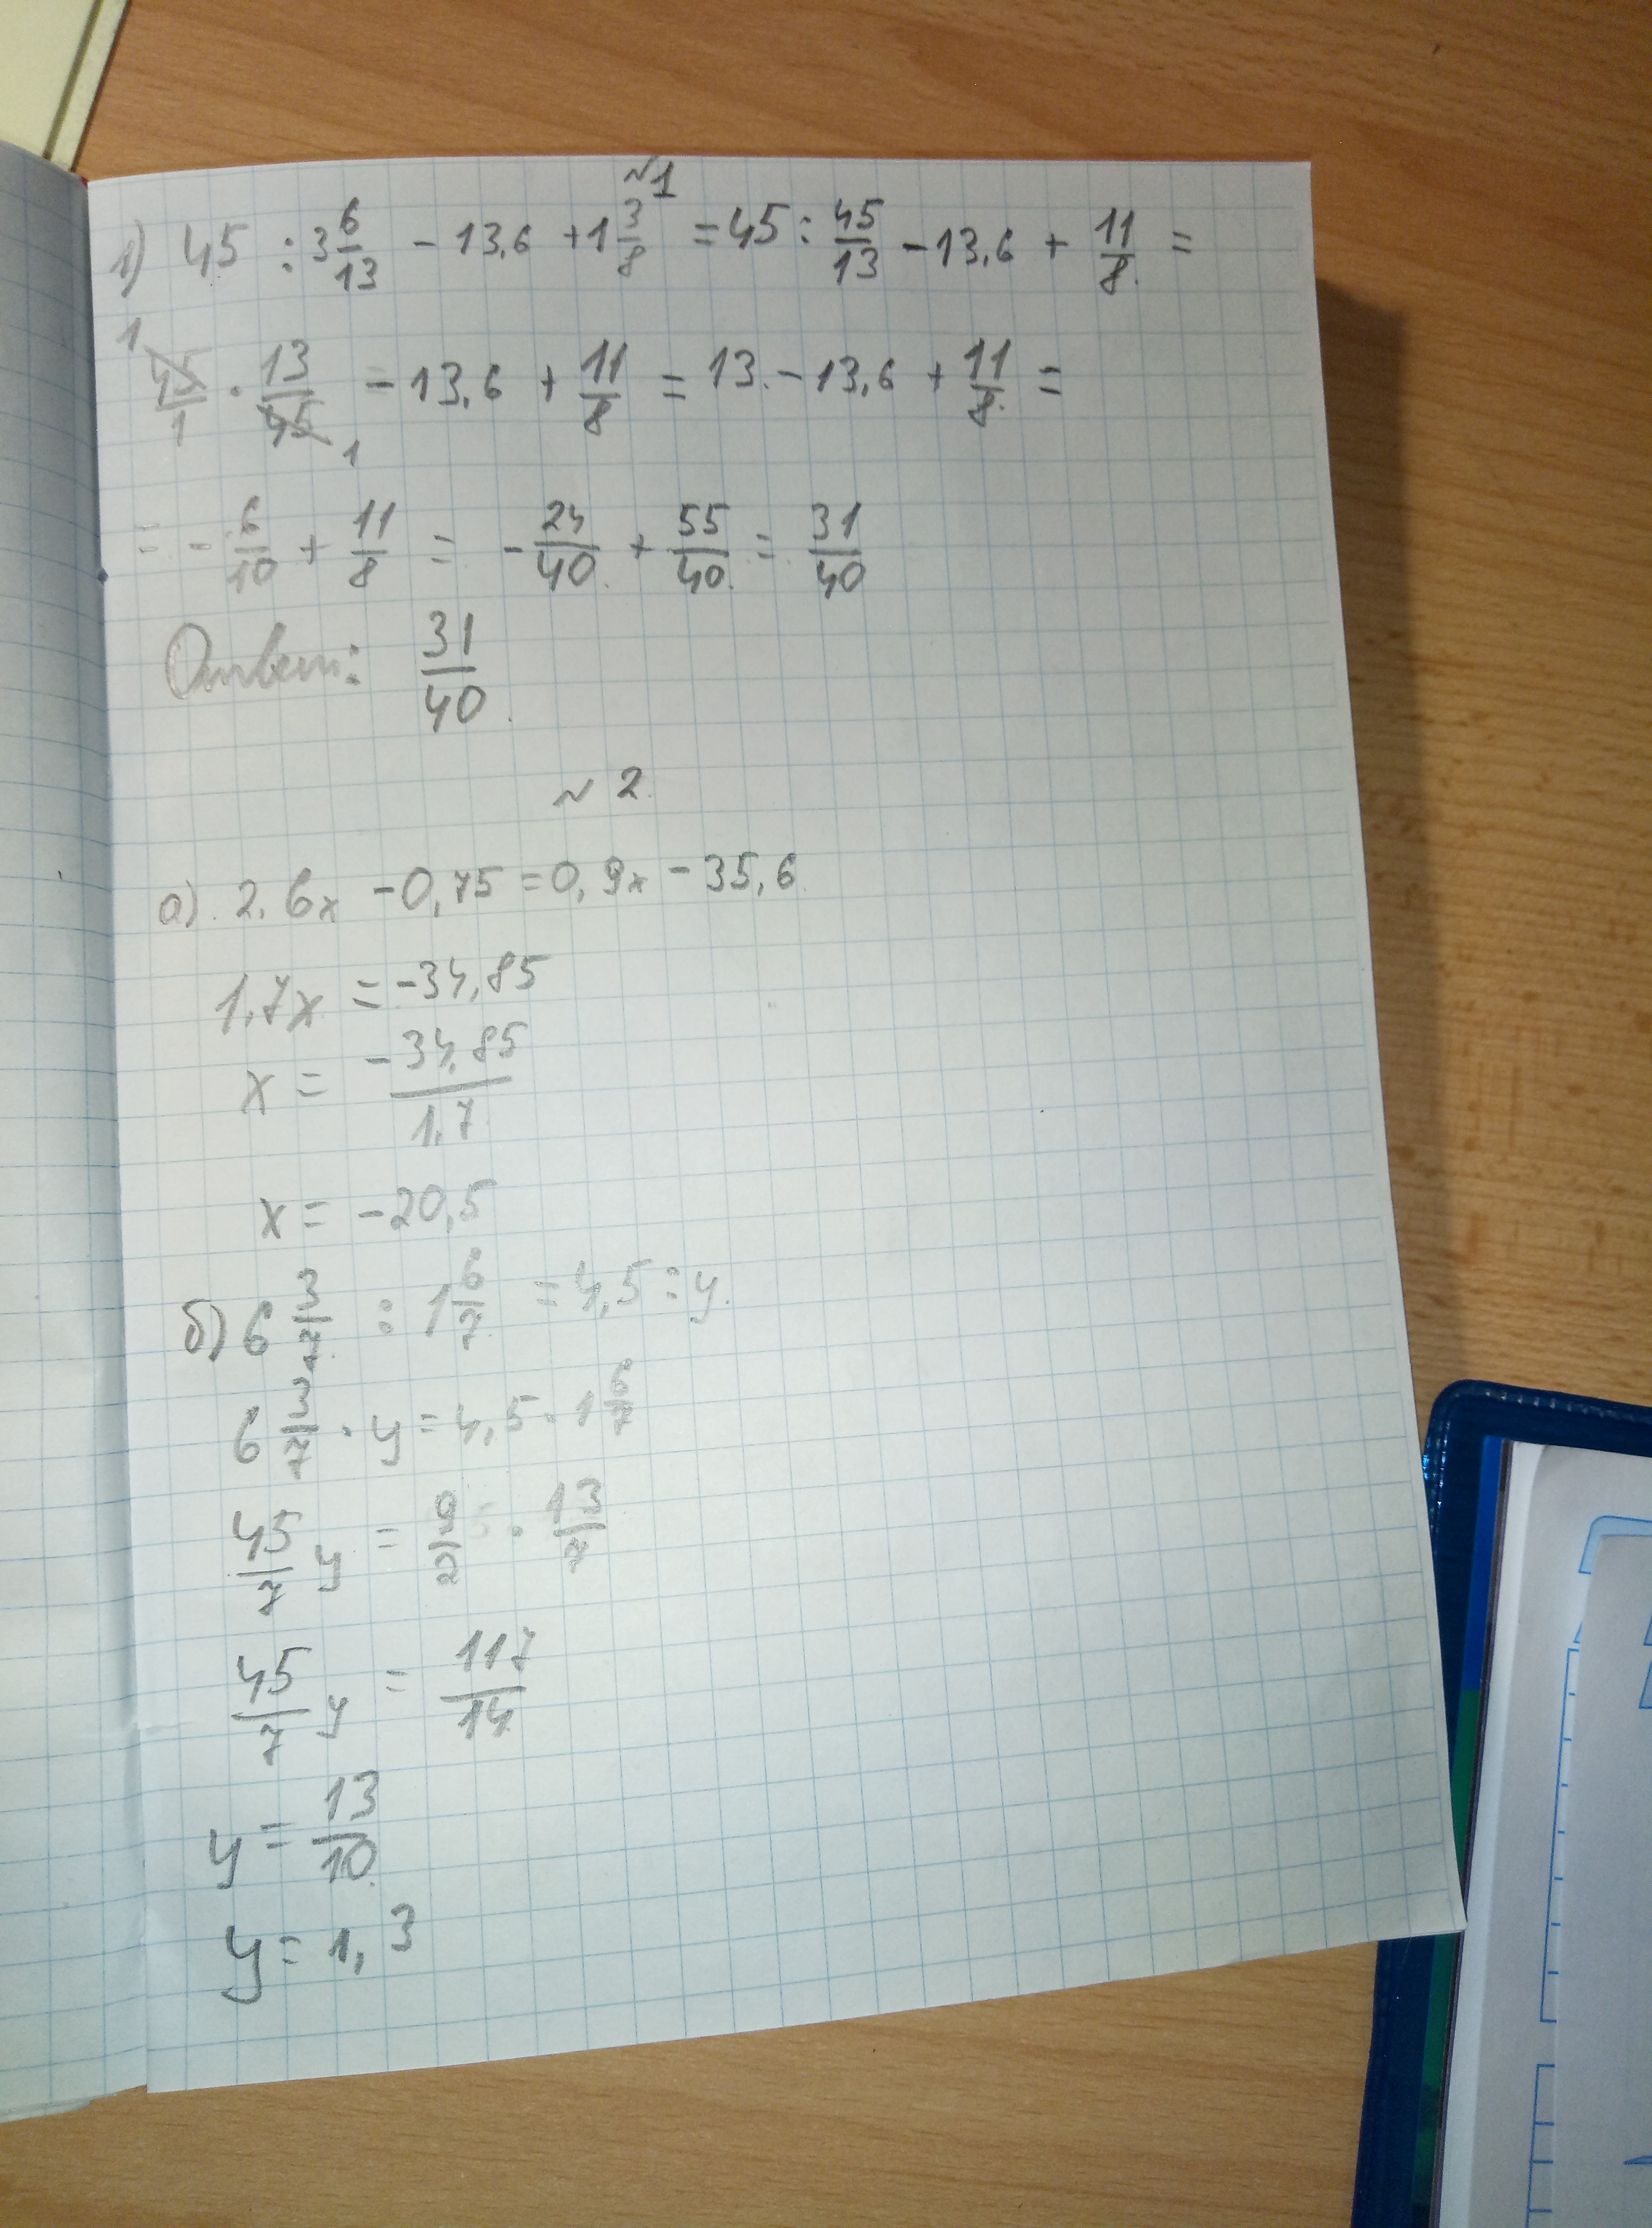 №1
1) 45 : 3 6/13 - 13,6 + 1 3/8 = 45 : 45/13 - 13,6 + 11/8 =
45/1 · 13/45 - 13,6 + 11/8 = 13 - 13,6 + 11/8 =
= - 6/10 + 11/8 = - 24/40 + 55/40 = 31/40
Ответ: 31/40
№ 2
а) 2,6x - 0,75 = 0,9x - 35,6
1,7x = -34,85
x = -34,85/1,7
x = -20,5
б) 6 3/7 : 1 6/7 = 4,5 : y
6 3/7 · y = 4,5 · 1 6/7
45/7 y = 9/2 · 13/7
45/7 y = 117/14
y = 13/10
y = 1,3